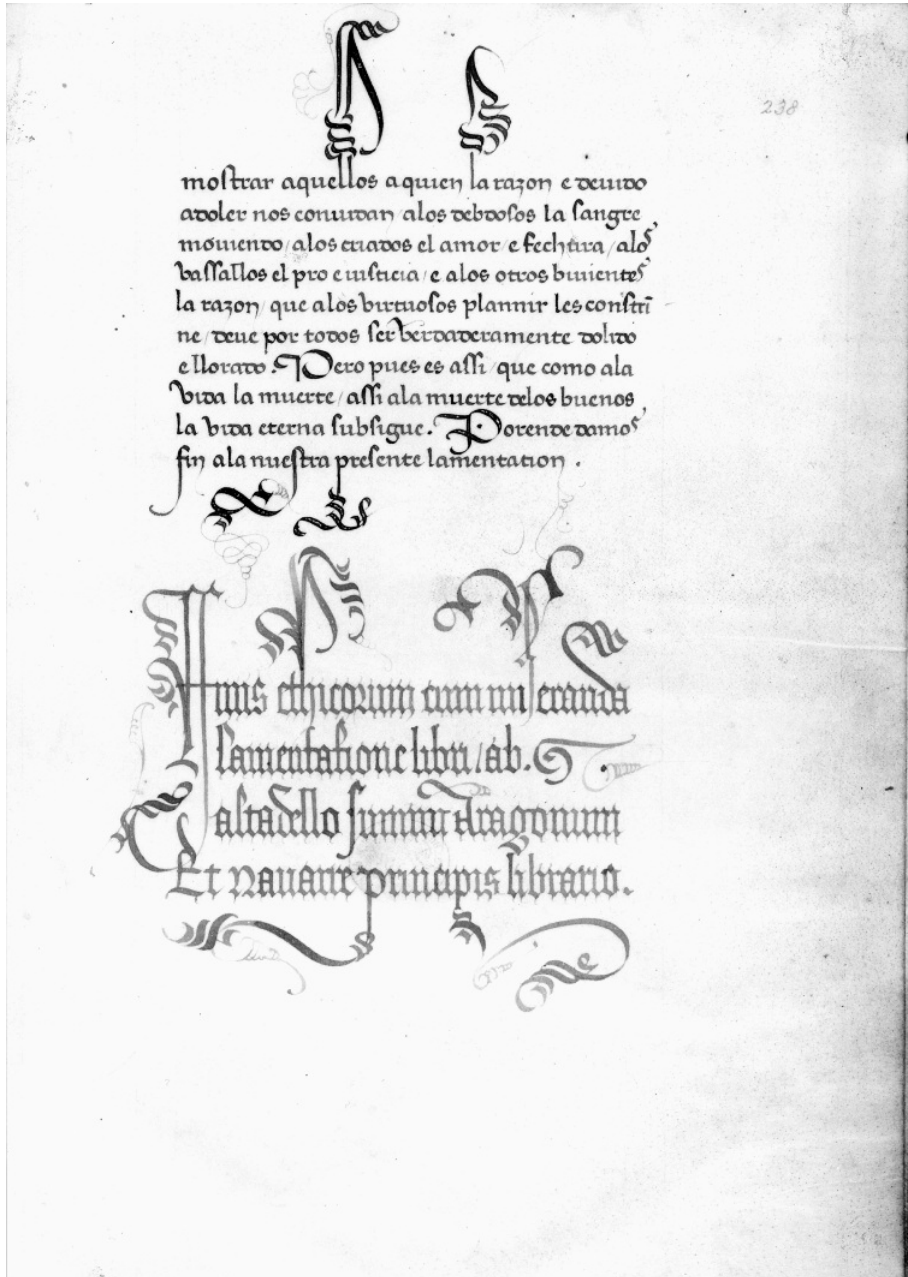 238
mostrar aquellos a quien la razon e deuido
adoler nos conuidan / alos debdosos la sangre
mouiendo / alos criados el amor / e fechura / alos
vassallos el pro e iusticia / e alos otros biuientes
la razon / que alos virtuosos plannir les constri
ne / deue por todos ser verdaderamente dolido
e llorado. Pero pues es assi / que como ala
vida la muerte / assi ala muerte delos buenos
la vida eterna subsigue. Porende damos
fin ala nuestra presente lamentation.
Finis ethicorum cum miseranda
lamentatione libri / ab. G
astadello summi Aragonum
Et Nauarre principis librario.